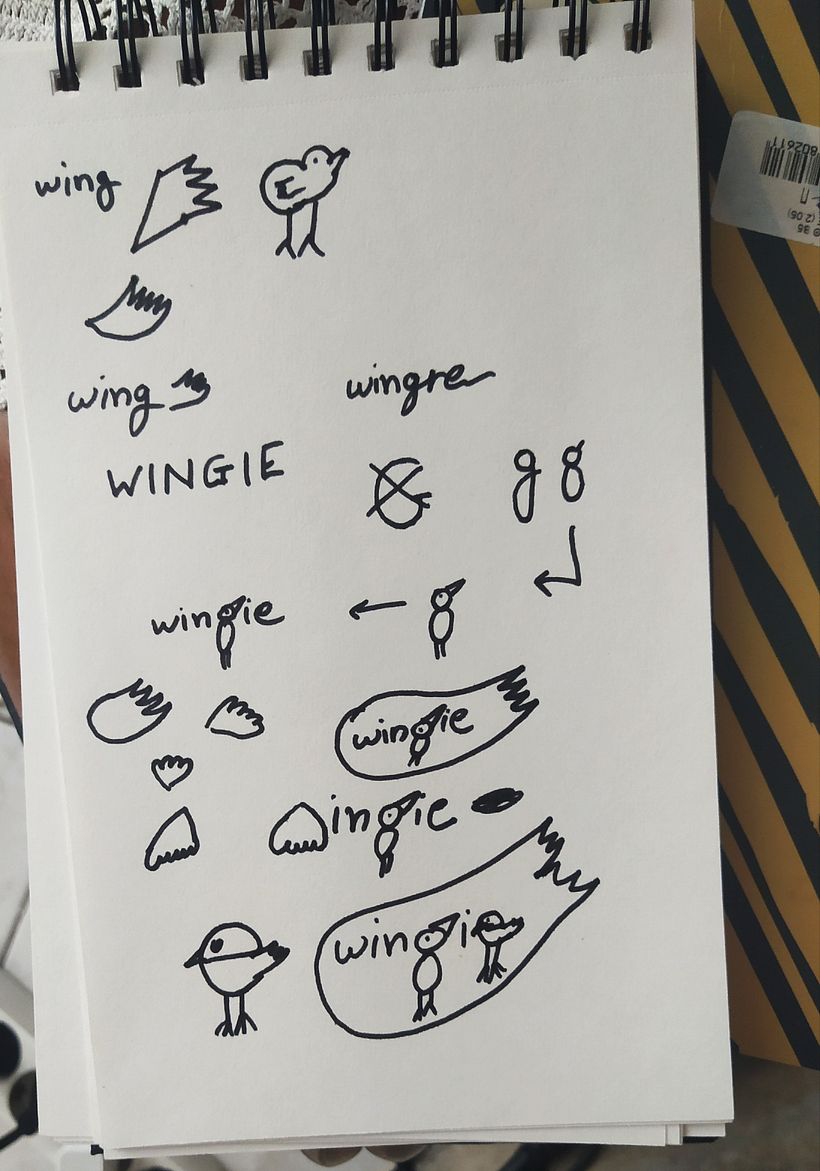 wing
wing
wingre
WINGIE
g g
wingie
wingie
ingie
wingie
802611
(2.05)